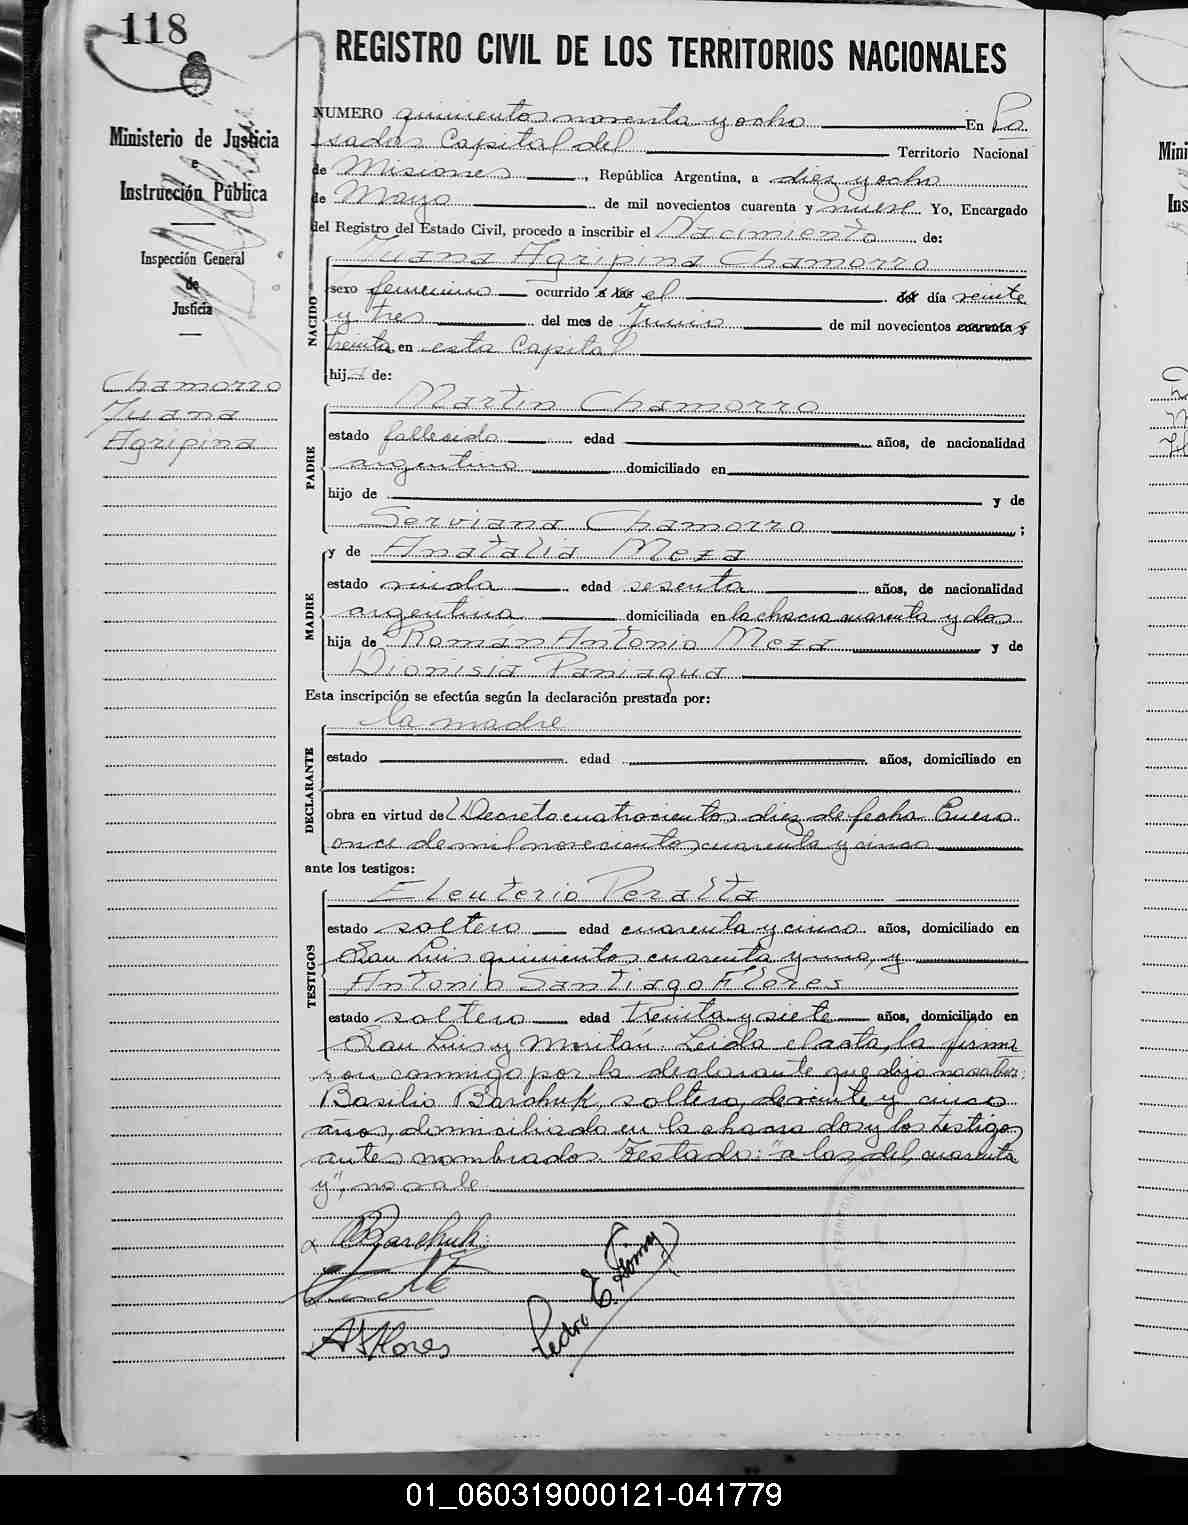 118
REGISTRO CIVIL DE LOS TERRITORIOS NACIONALES
Ministerio de Justicia
e
Instrucción Pública
Inspección General
de
Justicia
Chamorro
Juana
Agripina
NUMERO quinientos noventa y ocho En Po
sadas Capital del Territorio Nacional
de Misiones, República Argentina, a diez y ocho
de Mayo de mil novecientos cuarenta y nueve Yo, Encargado
del Registro del Estado Civil, procedo a inscribir el Nacimiento de:
Juana Agripina Chamorro
NACIDO
sexo femenino ocurrido a las el del día veinte
y tres del mes de Junio de mil novecientos cuarenta y
treinta en esta Capital
hija de:
PADRE
Martin Chamorro
estado fallecido edad años, de nacionalidad
argentino domiciliado en
hijo de y de
Serviana Chamorro ;
MADRE
y de Anatalia Meza
estado viuda edad sesenta años, de nacionalidad
argentina domiciliada en la chacra cuarenta y dos
hija de Roman Antonio Meza y de
Dionisia Paniagua
Esta inscripción se efectúa según la declaración prestada por:
DECLARANTE
la madre
estado edad años, domiciliado en
obra en virtud de Decreto cuatrocientos diez de fecha Enero
once de mil novecientos cuarenta y cinco
ante los testigos:
TESTIGOS
Eleuterio Peralta
estado soltero edad cuarenta y cinco años, domiciliado en
San Luis quinientos cuarenta y uno, y
Antonio Santiago Flores
estado soltero edad treinta y siete años, domiciliado en
San Luis y Mortán. Leida el acta, la firma
ron conmigo por la declarante que dijo no saber:
Basilio Barchuk, soltero, de veinte y cinco
años, domiciliado en la chacra dos y los testigos
antes nombrados. Testado: "a las, del, cuarenta
y", no vale
Barchuk
A S Flores
Pedro E.
01_060319000121-041779